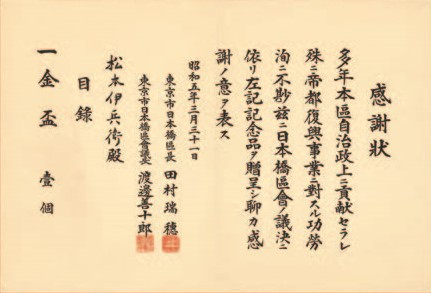 感謝狀
多年本區自治政上ニ貢献セラレ
殊ニ帝都復興事業ニ對スル功勞
洵ニ不尠玆ニ日本橋區會ノ議決ニ
依リ左記記念品ヲ贈呈シ聊カ感
謝ノ意ヲ表ス
昭和五年三月三十一日
東京市日本橋區長 田村瑞穗
東京市日本橋區會議長 渡邊善十郎
松本伊兵衞殿
目錄
一金盃 壹個